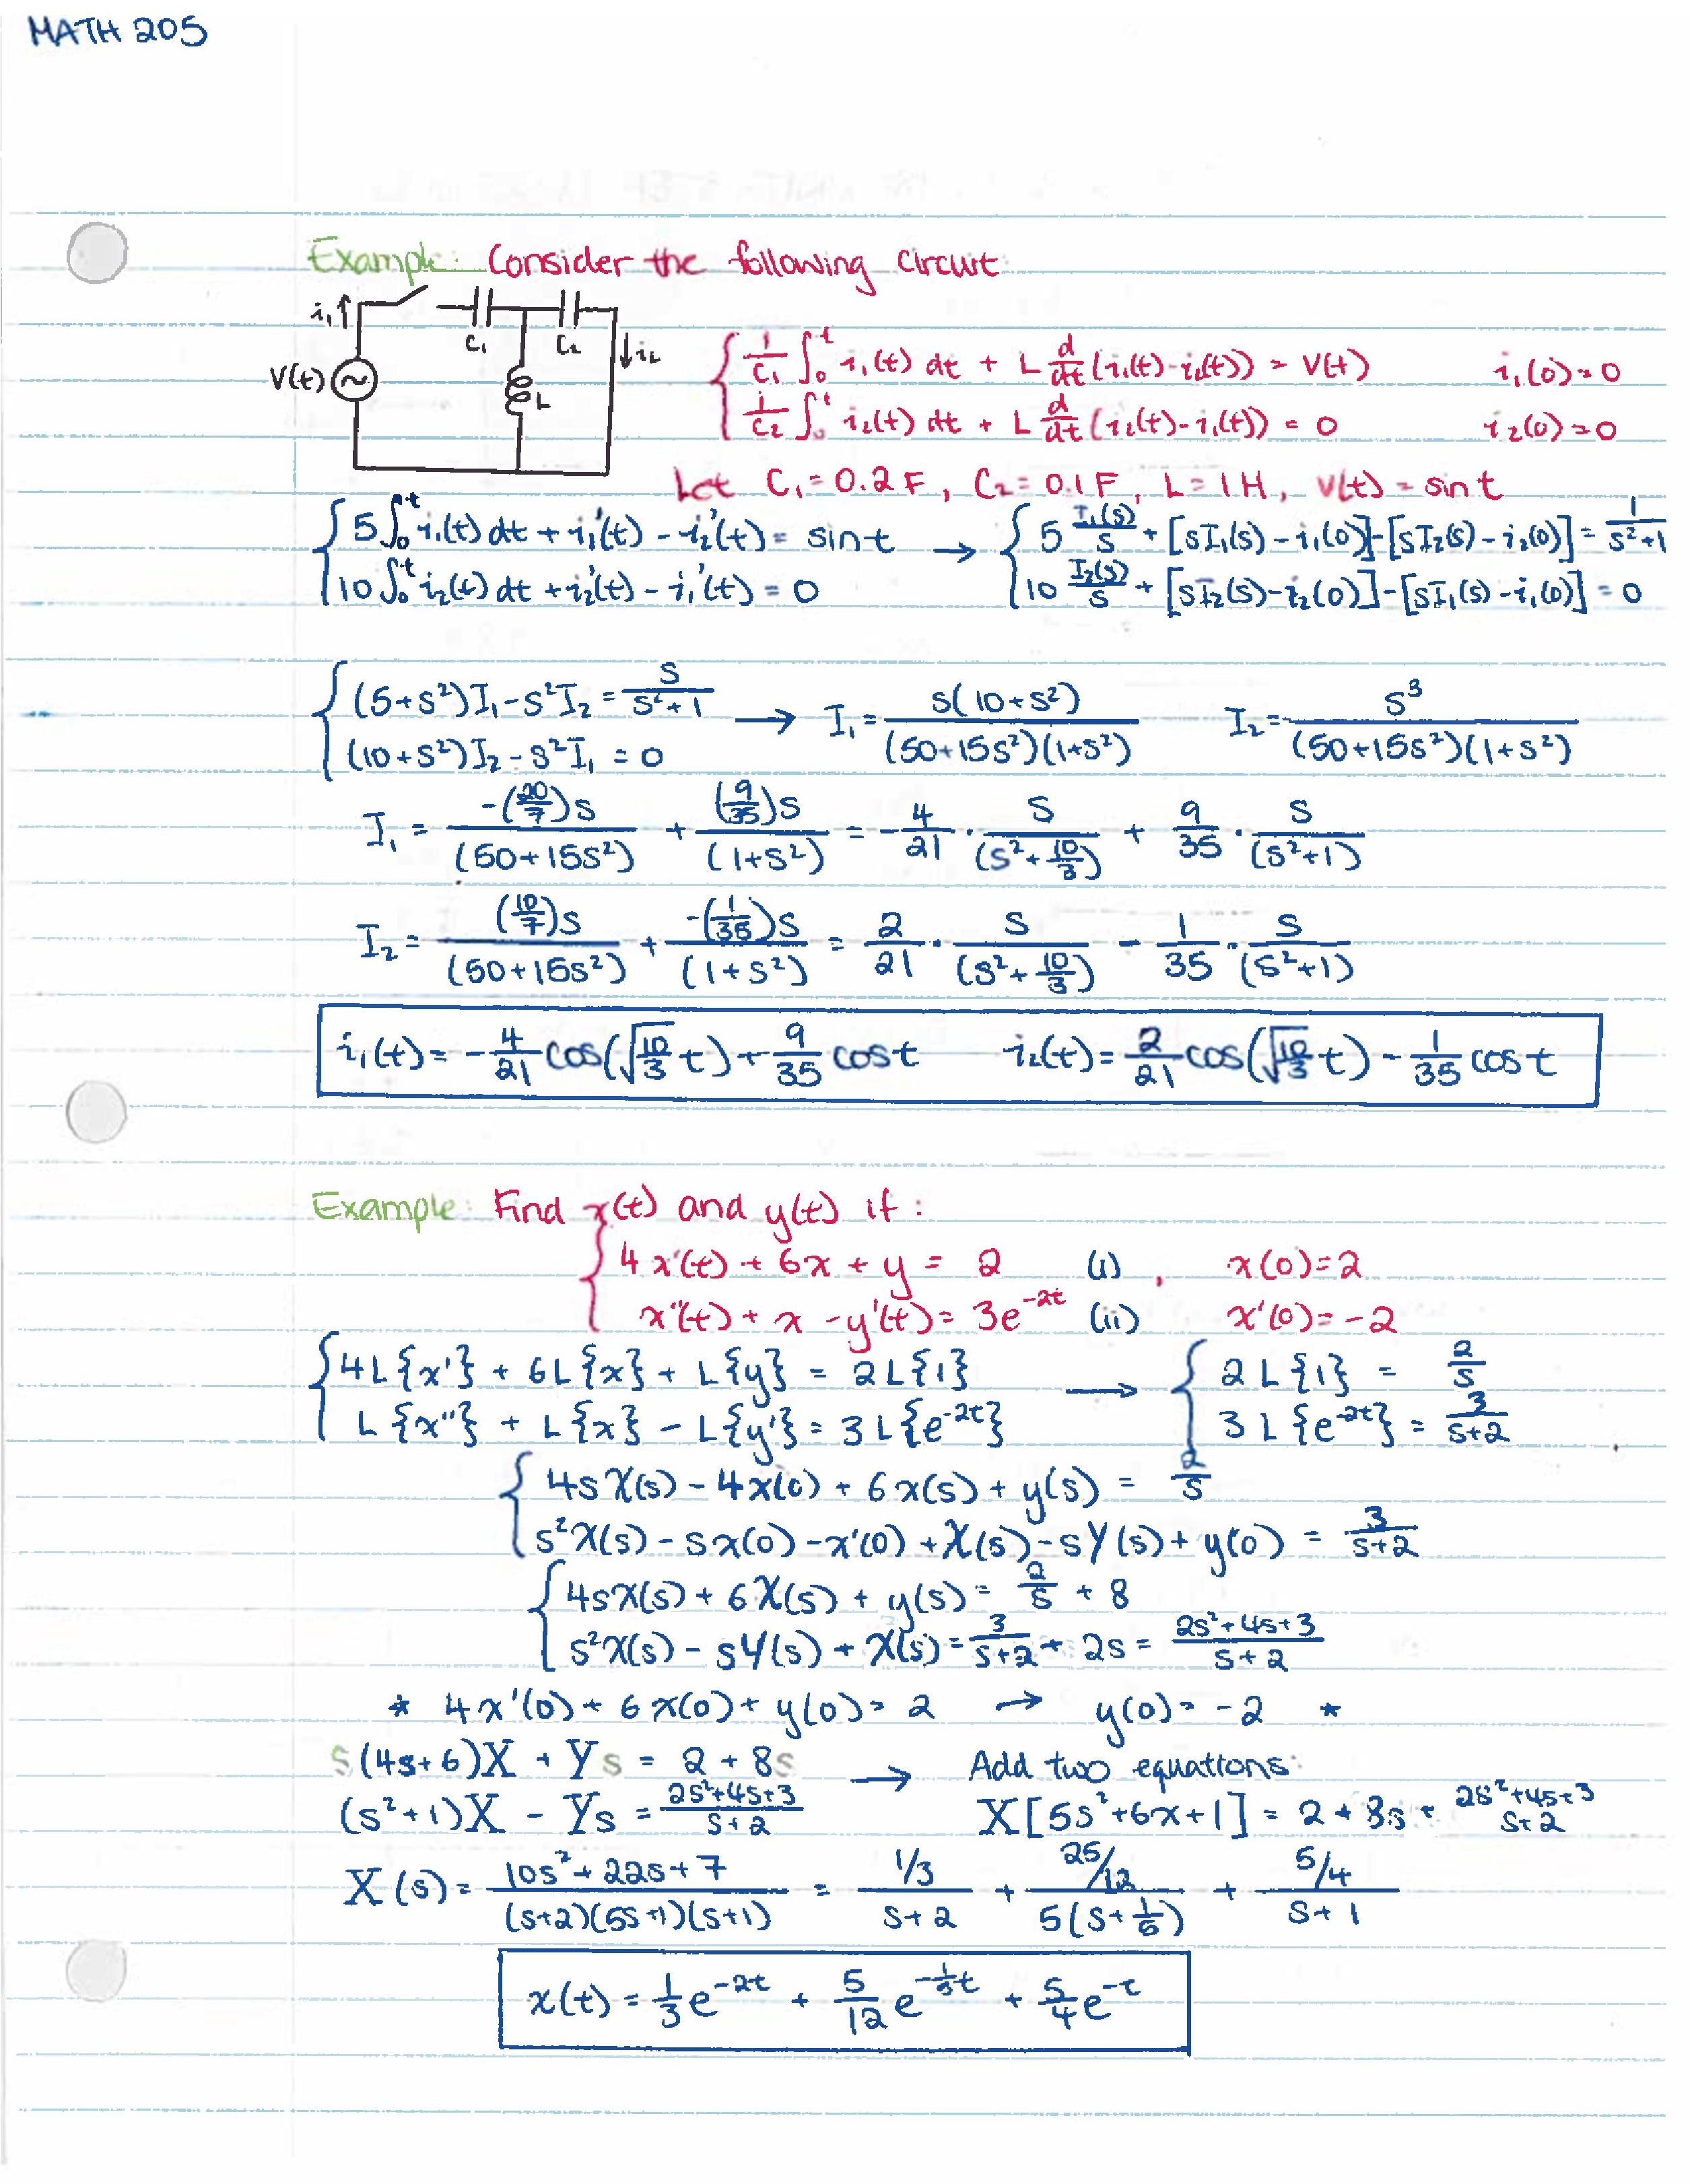 MATH 205
Example: Consider the following circuit:
i₁↑ C₁ C₂ ↓i₂
V(t) L
{ 1/C₁ ∫₀ᵗ i₁(t) dt + L d/dt (i₁(t) - i₂(t)) = V(t) i₁(0) = 0
{ 1/C₂ ∫₀ᵗ i₂(t) dt + L d/dt (i₂(t) - i₁(t)) = 0 i₂(0) = 0
Let C₁ = 0.2 F, C₂ = 0.1 F, L = 1 H, V(t) = sin t
{ 5∫₀ᵗ i₁(t) dt + i₁'(t) - i₂'(t) = sin t → { 5 I₁(s)/s + [sI₁(s) - i₁(0)] - [sI₂(s) - i₂(0)] = 1/(s²+1)
{ 10∫₀ᵗ i₂(t) dt + i₂'(t) - i₁'(t) = 0 { 10 I₂(s)/s + [sI₂(s) - i₂(0)] - [sI₁(s) - i₁(0)] = 0
{ (5+s²)I₁ - s²I₂ = s/(s²+1) → I₁ = s(10+s²)/((50+15s²)(1+s²)) I₂ = s³/((50+15s²)(1+s²))
{ (10+s²)I₂ - s²I₁ = 0
I₁ = -(20/7)s/(50+15s²) + (9/35)s/(1+s²) = -4/21 · s/(s²+10/3) + 9/35 · s/(s²+1)
I₂ = (10/7)s/(50+15s²) + -(1/35)s/(1+s²) = 2/21 · s/(s²+10/3) - 1/35 · s/(s²+1)
i₁(t) = -4/21 cos(√(10/3) t) + 9/35 cos t i₂(t) = 2/21 cos(√(10/3) t) - 1/35 cos t
Example: Find x(t) and y(t) if:
{ 4x'(t) + 6x + y = 2 (i) , x(0) = 2
{ x''(t) + x - y'(t) = 3e^(-2t) (ii) x'(0) = -2
{ 4L{x'} + 6L{x} + L{y} = 2L{1} → { 2L{1} = 2/s
{ L{x''} + L{x} - L{y'} = 3L{e^(-2t)} { 3L{e^(-2t)} = 3/(s+2)
{ 4sX(s) - 4x(0) + 6x(s) + y(s) = 2/s
{ s²X(s) - sx(0) - x'(0) + X(s) - sY(s) + y(0) = 3/(s+2)
{ 4sX(s) + 6X(s) + y(s) = 2/s + 8
{ s²X(s) - sY(s) + X(s) = 3/(s+2) + 2s = (2s²+4s+3)/(s+2)
* 4x'(0) + 6x(0) + y(0) = 2 → y(0) = -2 *
s(4s+6)X + Ys = 2 + 8s → Add two equations:
(s²+1)X - Ys = (2s²+4s+3)/(s+2) X[5s²+6x+1] = 2 + 8s + (2s²+4s+3)/(s+2)
X(s) = (10s²+22s+7)/((s+2)(5s+1)(s+1)) = (1/3)/(s+2) + (25/12)/(5(s+1/5)) + (5/4)/(s+1)
x(t) = 1/3 e^(-2t) + 5/12 e^(-1/5 t) + 5/4 e^(-t)